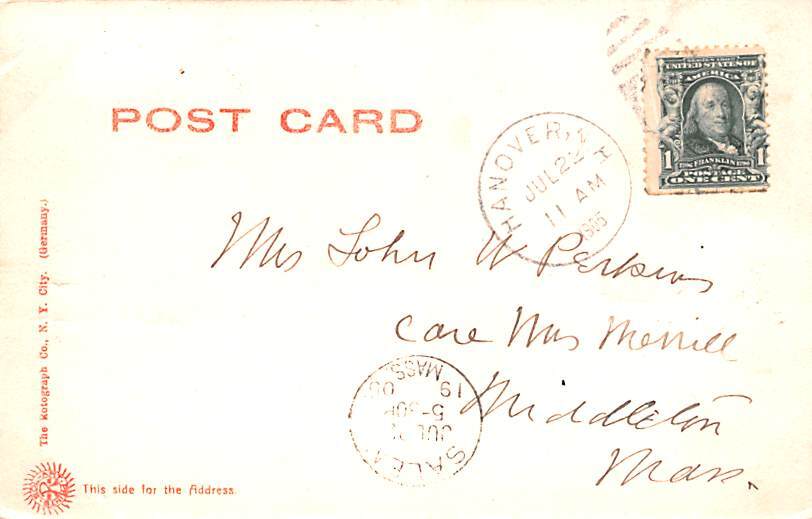 SERIES 1902
UNITED STATES OF
AMERICA
1 FRANKLIN 1
POSTAGE
ONE CENT
POST CARD
HANOVER, N H
JUL 22
11 AM
1905
Mrs John W Perkins
Care Mrs Merrill
Middleton
Mass.
SALEM
JUL
5-30P
19 05
MASS.
The Rotograph Co., N. Y. City. (Germany.)
This side for the Address.